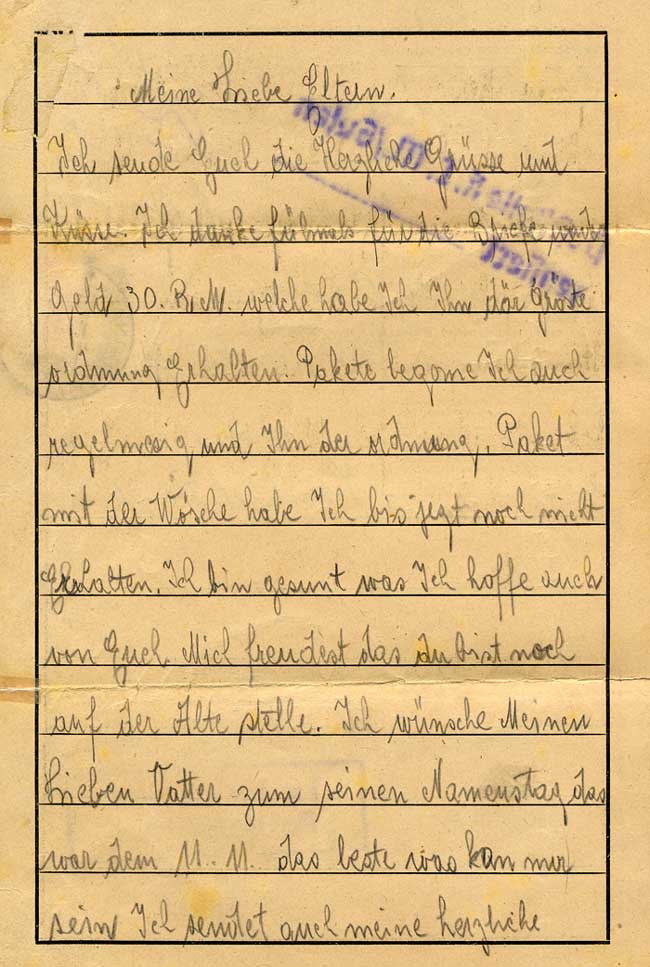 Meine Liebe Eltern.
Ich sende Euch die Herzliche Grüsse und
Küsse. Ich danke fülmals für die Briefe und
Geld 30. R.M. welche habe Ich Ihn dör Gröste
ordnung Erhalten. Pakete begome Ich auch
regelmesig und Ihn der ordnung. Paket
mit der Wösche habe Ich bis jezt noch nicht
Erhalten. Ich bin gesunt was Ich hoffe auch
von Euch. Mich freudest das du bist noch
auf der Alte stelle. Ich wünsche Meinen
Lieben Vatter zum seinen Namenstag das
war dem 11. 11. das beste was kan nur
sein Ich sendet auch meine herzliche